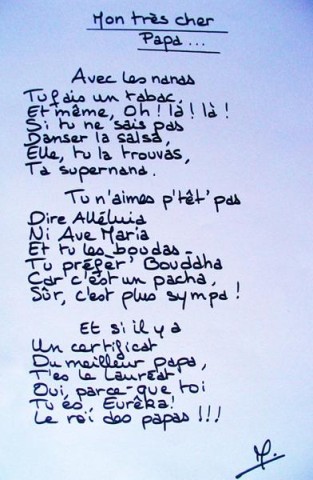 Mon très cher
Papa...
Avec les nanas
Tu fais un tabac,
Et même, Oh ! là ! là !
Si tu ne sais pas
Danser la salsa,
Elle, tu la trouvas,
Ta supernana.
Tu n'aimes p'têt' pas
Dire Alléluia
Ni Ave Maria
Et tu les boudas.
Tu préfèr' Bouddha
Car c'est un pacha,
Sûr, c'est plus sympa !
Et si il y a
Un certificat
Du meilleur papa,
T'es le lauréat
Oui, parce-que toi
Tu es, Eurêka!
Le roi des papas !!!
M.